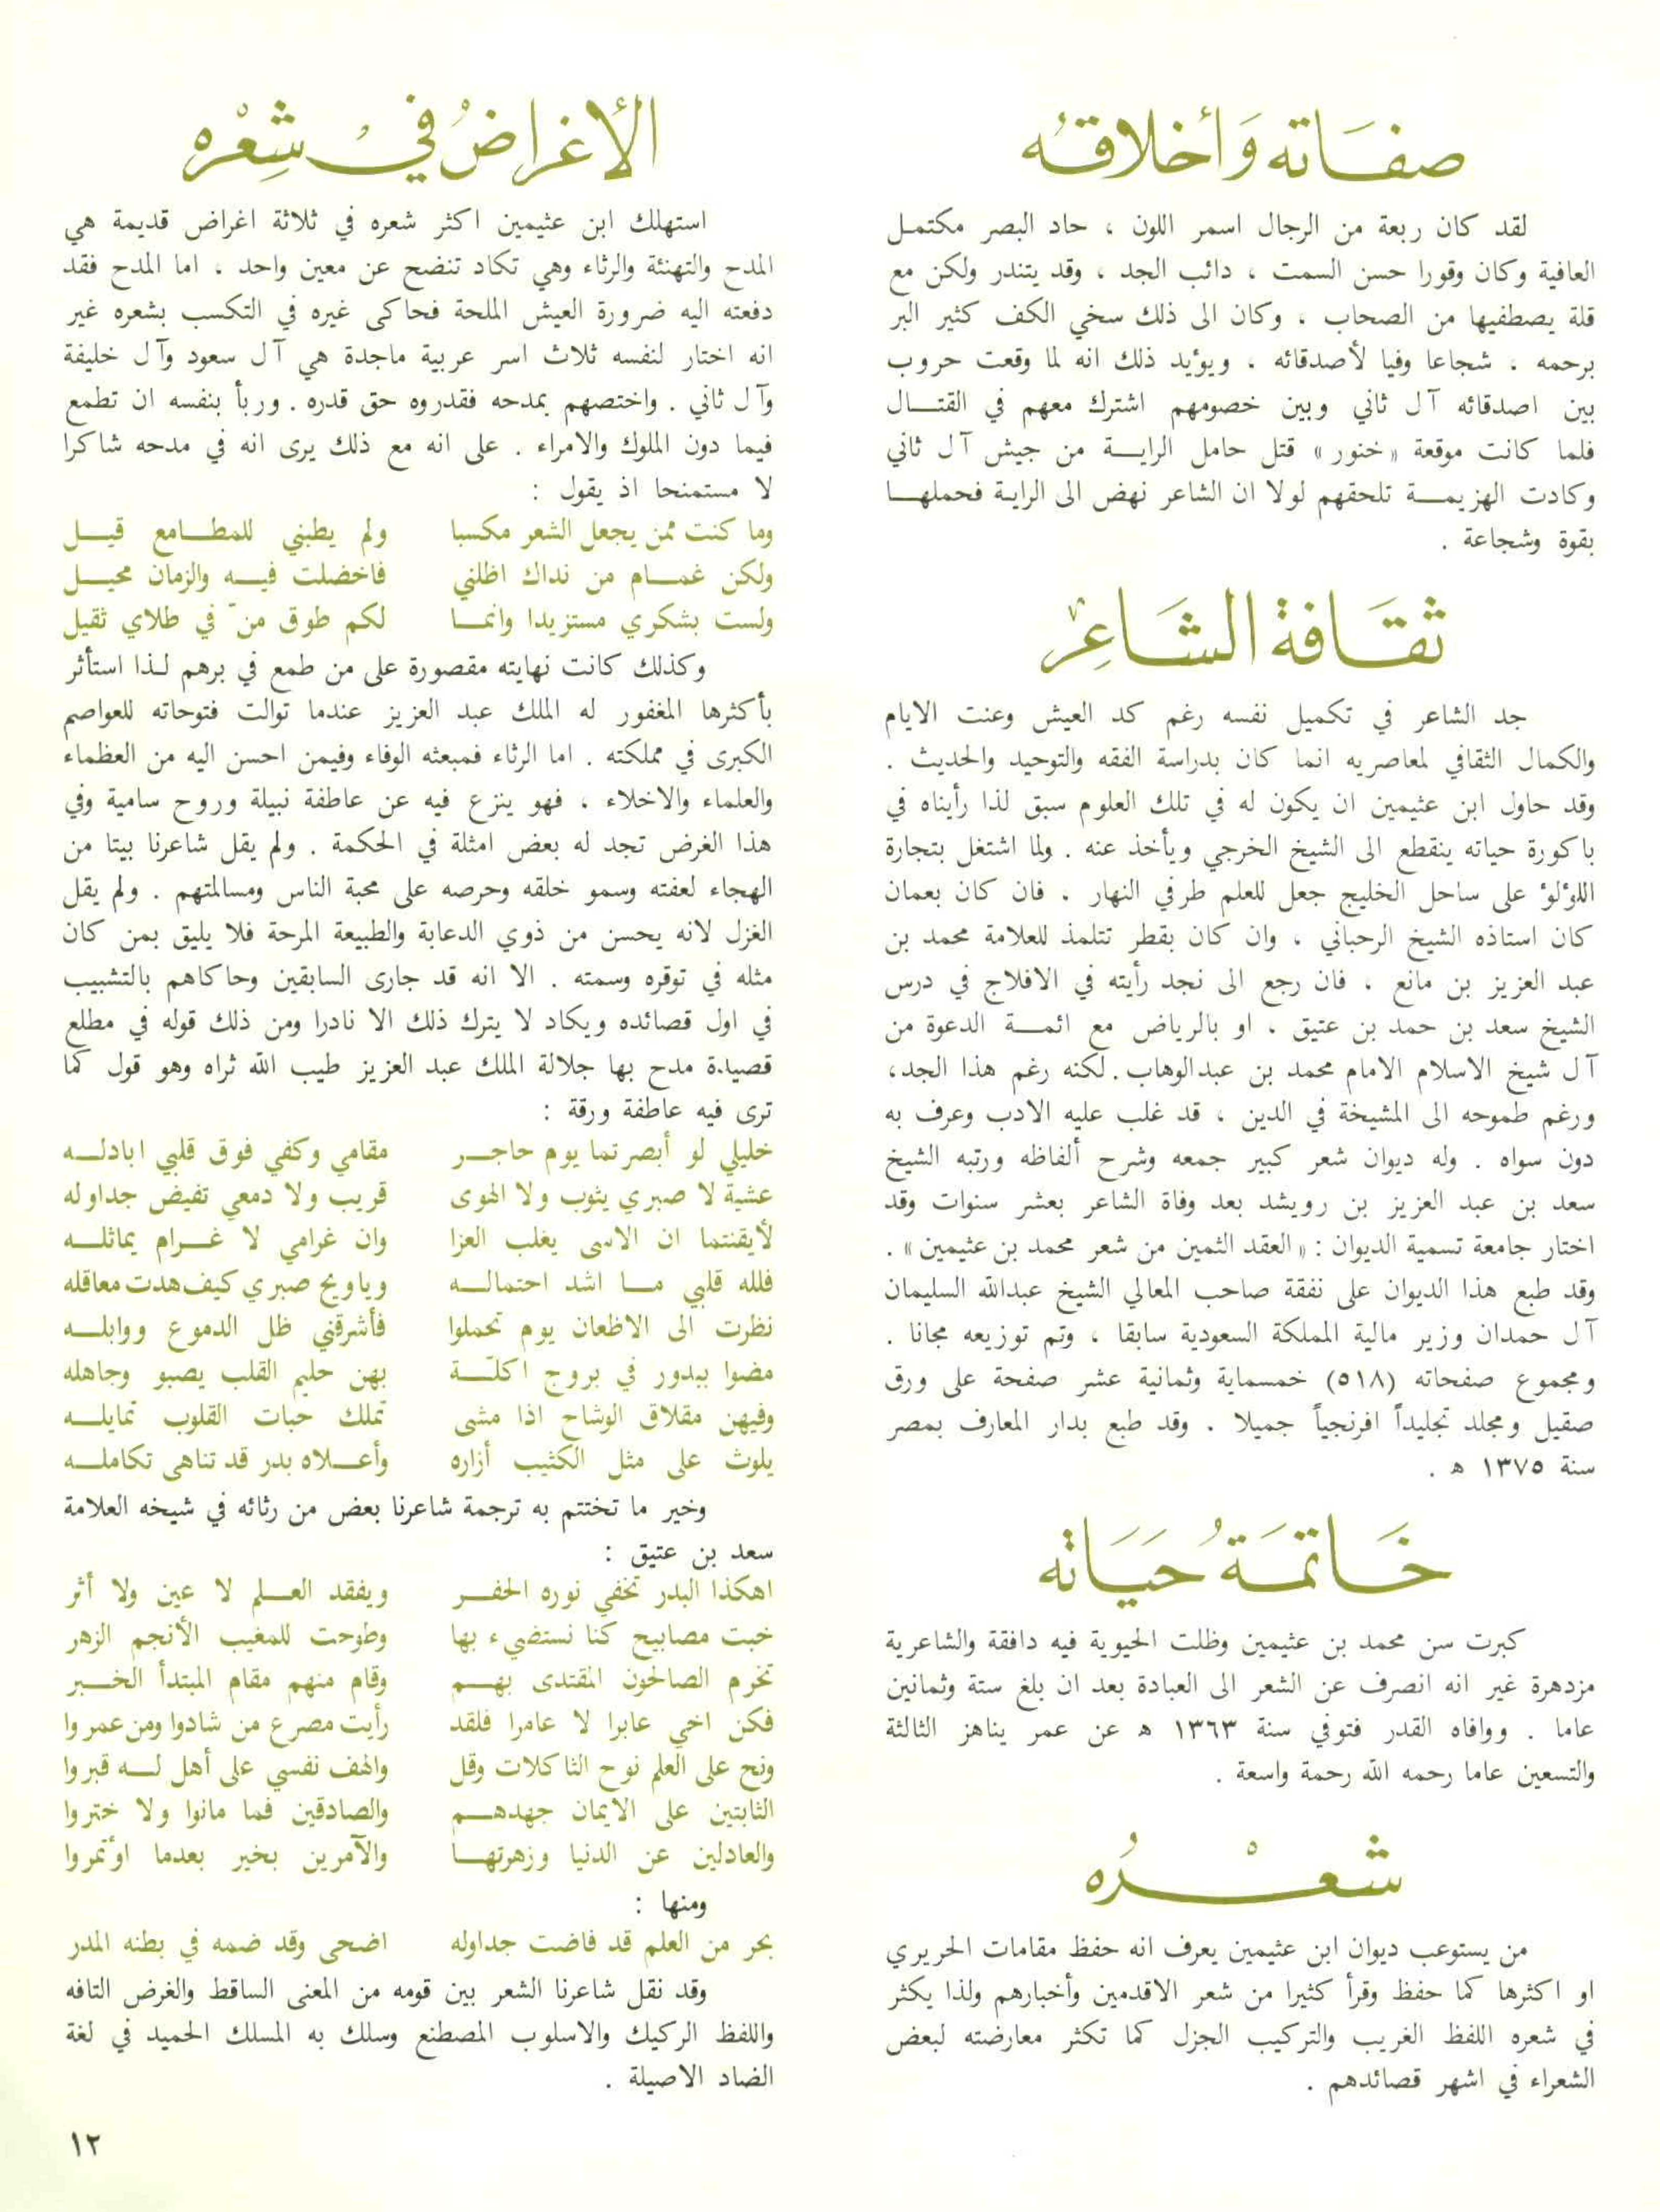 صفاته وأخلاقه
لقد كان ربعة من الرجال اسمر اللون ، حاد البصر مكتمل
العافية وكان وقورا حسن السمت ، دائب الجد ، وقد يتندر ولكن مع
قلة يصطفيها من الصحاب . وكان الى ذلك سخي الكف كثير البر
برحمه ، شجاعا وفيا لأصدقائه . ويؤيد ذلك انه لما وقعت حروب
بين اصدقائه آل ثاني وبين خصومهم اشترك معهم في القتال
فلما كانت موقعة « خنور » قتل حامل الراية من جيش آل ثاني
وكادت الهزيمة تلحقهم لولا ان الشاعر نهض الى الراية فحملها
بقوة وشجاعة .
ثقافة الشاعر
جد الشاعر في تكميل نفسه رغم كد العيش وعنت الايام
والكمال الثقافي لمعاصريه انما كان بدراسة الفقه والتوحيد والحديث .
وقد حاول ابن عثيمين ان يكون له في تلك العلوم سبق لذا رأيناه في
باكورة حياته ينقطع الى الشيخ الخرجي ويأخذ عنه . ولما اشتغل بتجارة
اللؤلؤ على ساحل الخليج جعل للعلم طرفي النهار . فان كان بعمان
كان استاذه الشيخ الرحباني ، وان كان بقطر تتلمذ للعلامة محمد بن
عبد العزيز بن مانع ، فان رجع الى نجد رأيته في الافلاج في درس
الشيخ سعد بن حمد بن عتيق ، او بالرياض مع ائمة الدعوة من
آل شيخ الاسلام الامام محمد بن عبدالوهاب . لكنه رغم هذا الجد ،
ورغم طموحه الى المشيخة في الدين ، قد غلب عليه الادب وعرف به
دون سواه . وله ديوان شعر كبير جمعه وشرح ألفاظه ورتبه الشيخ
سعد بن عبد العزيز بن رويشد بعد وفاة الشاعر بعشر سنوات وقد
اختار جامعة تسمية الديوان : « العقد الثمين من شعر محمد بن عثيمين » .
وقد طبع هذا الديوان على نفقة صاحب المعالي الشيخ عبدالله السليمان
آل حمدان وزير مالية المملكة السعودية سابقا ، وتم توزيعه مجانا .
ومجموع صفحاته (٥١٨) خمسماية وثمانية عشر صفحة على ورق
صقيل ومجلد تجليداً افرنجياً جميلا . وقد طبع بدار المعارف بمصر
سنة ١٣٧٥ ه .
خاتمة حياته
كبرت سن محمد بن عثيمين وظلت الحيوية فيه دافقة والشاعرية
مزدهرة غير انه انصرف عن الشعر الى العبادة بعد ان بلغ ستة وثمانين
عاما . ووافاه القدر فتوفي سنة ١٣٦٣ ه عن عمر يناهز الثالثة
والتسعين عاما رحمه الله رحمة واسعة .
شعره
من يستوعب ديوان ابن عثيمين يعرف انه حفظ مقامات الحريري
او اكثرها كما حفظ وقرأ كثيرا من شعر الاقدمين وأخبارهم ولذا يكثر
في شعره اللفظ الغريب والتركيب الجزل كما تكثر معارضته لبعض
الشعراء في اشهر قصائدهم .
الأغراض في شعره
استهلك ابن عثيمين اكثر شعره في ثلاثة اغراض قديمة هي
المدح والتهنئة والرثاء وهي تكاد تنضح عن معين واحد ، اما المدح فقد
دفعته اليه ضرورة العيش الملحة فحاكى غيره في التكسب بشعره غير
انه اختار لنفسه ثلاث اسر عربية ماجدة هي آل سعود وآل خليفة
وآل ثاني . واختصهم بمدحه فقدروه حق قدره . وربأ بنفسه ان تطمع
فيما دون الملوك والامراء . على انه مع ذلك يرى انه في مدحه شاكرا
لا مستمنحا اذ يقول :
وما كنت ممن يجعل الشعر مكسبا ولم يطبني للمطامع قيل
ولكن غمام من نداك اظلني فاخضلت فيه والزمان محيل
ولست بشكري مستزيدا وانما لكم طوق منّ في طلاي ثقيل
وكذلك كانت نهايته مقصورة على من طمع في برهم لذا استأثر
بأكثرها المغفور له الملك عبد العزيز عندما توالت فتوحاته للعواصم
الكبرى في مملكته . اما الرثاء فمبعثه الوفاء وفيمن احسن اليه من العظماء
والعلماء والاخلاء ، فهو ينزع فيه عن عاطفة نبيلة وروح سامية وفي
هذا الغرض تجد له بعض امثلة في الحكمة . ولم يقل شاعرنا بيتا من
الهجاء لعفته وسمو خلقه وحرصه على محبة الناس ومسالمتهم . ولم يقل
الغزل لانه يحسن من ذوي الدعابة والطبيعة المرحة فلا يليق بمن كان
مثله في توقره وسمته . الا انه قد جارى السابقين وحاكاهم بالتشبيب
في اول قصائده ويكاد لا يترك ذلك الا نادرا ومن ذلك قوله في مطلع
قصيدة مدح بها جلالة الملك عبد العزيز طيب الله ثراه وهو قول كما
ترى فيه عاطفة ورقة :
خليلي لو أبصرتما يوم حاجر مقامي وكفي فوق قلبي ابادله
عشية لا صبري يثوب ولا الهوى قريب ولا دمعي تفيض جداوله
لأيقنتما ان الاسى يغلب العزا وان غرامي لا غرام يماثله
فلله قلبي ما اشد احتماله وياويح صبري كيف هدت معاقله
نظرت الى الاظعان يوم تحملوا فأشرقني ظل الدموع ووابله
مضوا ببدور في بروج اكلّة بهن حليم القلب يصبو وجاهله
وفيهن مقلاق الوشاح اذا مشى تملك حبات القلوب تمايله
يلوث على مثل الكثيب أزاره وأعلاه بدر قد تناهى تكامله
وخير ما تختتم به ترجمة شاعرنا بعض من رثائه في شيخه العلامة
سعد بن عتيق :
اهكذا البدر تخفي نوره الحفر ويفقد العلم لا عين ولا أثر
خبت مصابيح كنا نستضيء بها وطوحت للمغيب الأنجم الزهر
تخرم الصالحون المقتدى بهم وقام منهم مقام المبتدأ الخبر
فكن اخي عابرا لا عامرا فلقد رأيت مصرع من شادوا ومن عمروا
ونح على العلم نوح الثاكلات وقل والهف نفسي على أهل له قبروا
الثابتين على الايمان جهدهم والصادقين فما مانوا ولا ختروا
والعادلين عن الدنيا وزهرتها والآمرين بخير بعدما اؤتمروا
ومنها :
بحر من العلم قد فاضت جداوله اضحى وقد ضمه في بطنه المدر
وقد نقل شاعرنا الشعر بين قومه من المعنى الساقط والغرض التافه
واللفظ الركيك والاسلوب المصطنع وسلك به المسلك الحميد في لغة
الضاد الاصيلة .
١٢